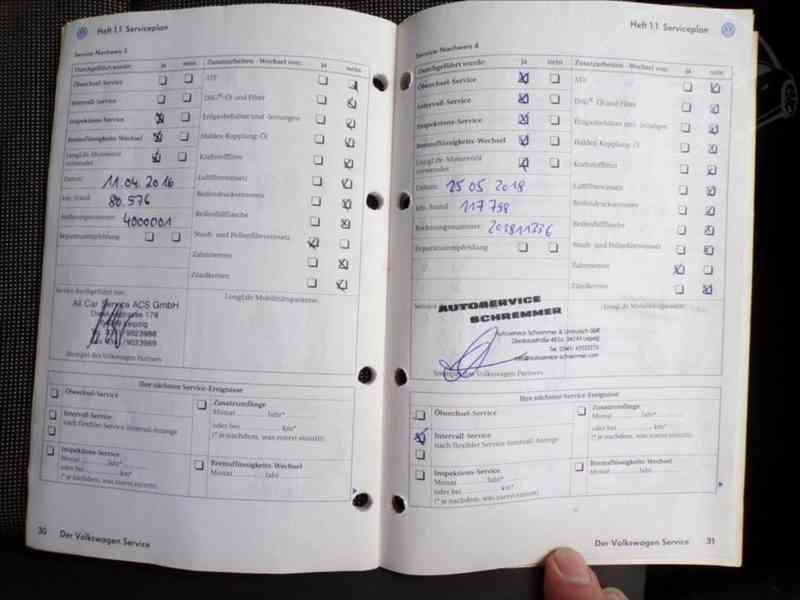 Heft 1.1 Serviceplan
Service-Nachweis 3
Durchgeführt wurde: ja nein
Zusatzarbeiten - Wechsel von: ja nein
Ölwechsel-Service
ATF
Intervall-Service
DSG®-Öl und Filter
Inspektions-Service
Erdgasbehälter und -leitungen
Bremsflüssigkeits-Wechsel
Haldex Kupplung-Öl
LongLife-Motorenöl
verwendet
Kraftstofffilter
Datum: 11.04.2016
Luftfiltereinsatz
km-Stand 80.576
Reifendichtmittel
Auftragsnummer 4000001
Reifenfüllflasche
Reparaturempfehlung
Staub- und Pollenfiltereinsatz
Zahnriemen
Zündkerzen
Service durchgeführt von:
LongLife Mobilitätsgarantie:
All Car Service ACS GmbH
Leipzig
Stempel des Volkswagen Partners
Ihre nächsten Service-Ereignisse
Ölwechsel-Service
Zusatzumfänge
Monat Jahr*
Intervall-Service
nach flexibler Service-Intervall-Anzeige
oder bei km*
(* je nachdem, was zuerst eintritt)
Inspektions-Service
Monat Jahr*
oder bei km*
(* je nachdem, was zuerst eintritt)
Bremsflüssigkeits-Wechsel
Monat Jahr
30 Der Volkswagen Service
Heft 1.1 Serviceplan
Service-Nachweis 4
Durchgeführt wurde: ja nein
Zusatzarbeiten - Wechsel von: ja nein
Ölwechsel-Service
ATF
Intervall-Service
DSG®-Öl und Filter
Inspektions-Service
Erdgasbehälter und -leitungen
Bremsflüssigkeits-Wechsel
Haldex Kupplung-Öl
LongLife-Motorenöl
verwendet
Kraftstofffilter
Datum: 25 05 2018
Luftfiltereinsatz
km-Stand 117 798
Reifendichtmittel
Rechnungsnummer
Reifenfüllflasche
Reparaturempfehlung
Staub- und Pollenfiltereinsatz
Zahnriemen
Zündkerzen
Service
LongLife Mobilitätsgarantie:
AUTOSERVICE
SCHREMMER
Leipzig
Stempel des Volkswagen Partners
Ihre nächsten Service-Ereignisse
Ölwechsel-Service
Zusatzumfänge
Monat Jahr*
Intervall-Service
nach flexibler Service-Intervall-Anzeige
oder bei km*
(* je nachdem, was zuerst eintritt)
Inspektions-Service
Monat Jahr*
oder bei km*
(* je nachdem, was zuerst eintritt)
Bremsflüssigkeits-Wechsel
Monat Jahr
Der Volkswagen Service 31